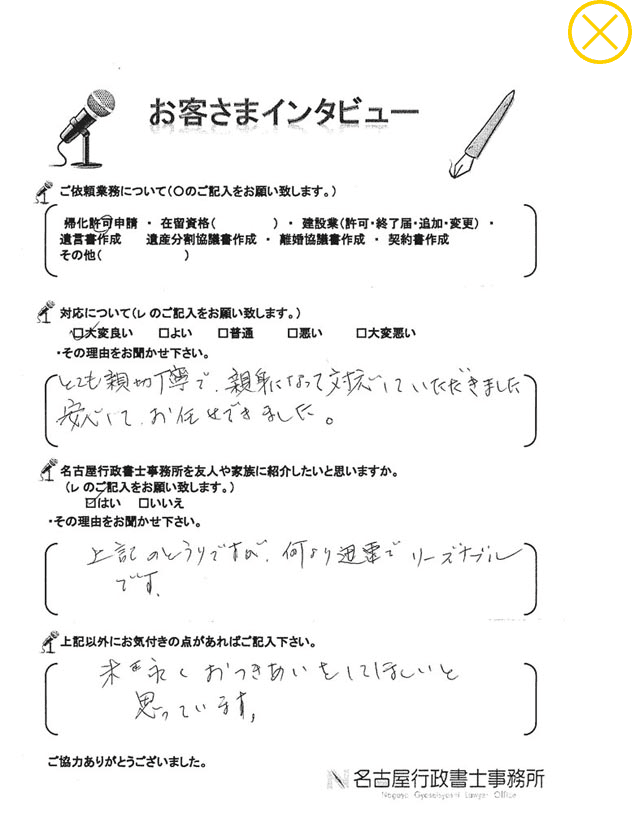 お客さまインタビュー
ご依頼業務について(○のご記入をお願い致します。)
帰化許可申請 ・ 在留資格( ) ・ 建設業(許可・終了届・追加・変更) ・
遺言書作成 遺産分割協議書作成 ・ 離婚協議書作成 ・ 契約書作成
その他( )
対応について(レ のご記入をお願い致します。)
☑大変良い □よい □普通 □悪い □大変悪い
・その理由をお聞かせ下さい。
とても親切丁寧で、親身になって対応していただきました
安心して、お任せできました。
名古屋行政書士事務所を友人や家族に紹介したいと思いますか。
(レ のご記入をお願い致します。)
☑はい □いいえ
・その理由をお聞かせ下さい。
上記のとうりですが、何より迅速で リーズナブル
です。
上記以外にお気付きの点があればご記入下さい。
末永く おつきあいをしてほしいと
思っています。
ご協力ありがとうございました。
名古屋行政書士事務所
Nagoya Gyoseisyoshi Lawyer Office